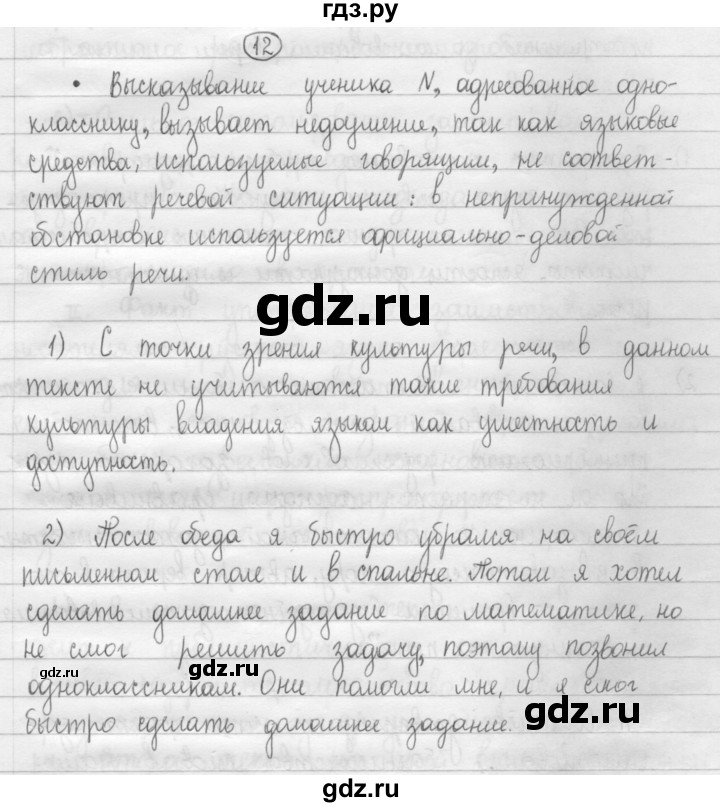 гдз.ру
12
• Высказывание ученика N, адресованное одно-
класснику, вызывает недоумение, так как языковые
средства, используемые говорящим, не соответ-
ствуют речевой ситуации: в непринужденной
обстановке используется официально-деловой
стиль речи.
gdz.ru
1) С точки зрения культуры речи, в данном
тексте не учитываются такие требования
культуры владения языком как уместность и
доступность.
gdz.ru
2) После обеда я быстро убрался на своём
письменном столе и в спальне. Потом я хотел
сделать домашнее задание по математике, но
не смог решить задачу, поэтому позвонил
gdz.ru
gdz.ru
одноклассникам. Они помогли мне, и я смог
быстро сделать домашнее задание.
gdz.ru
gdz.ru